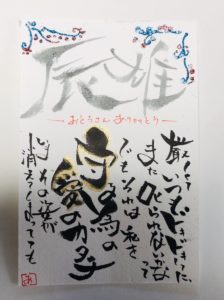 辰雄
おとうさんありがとう
厳しくて
いつもドキドキしてた
また叱られないかなって
でもそれは私を
守る為の
愛のカタチ
姿が
消え